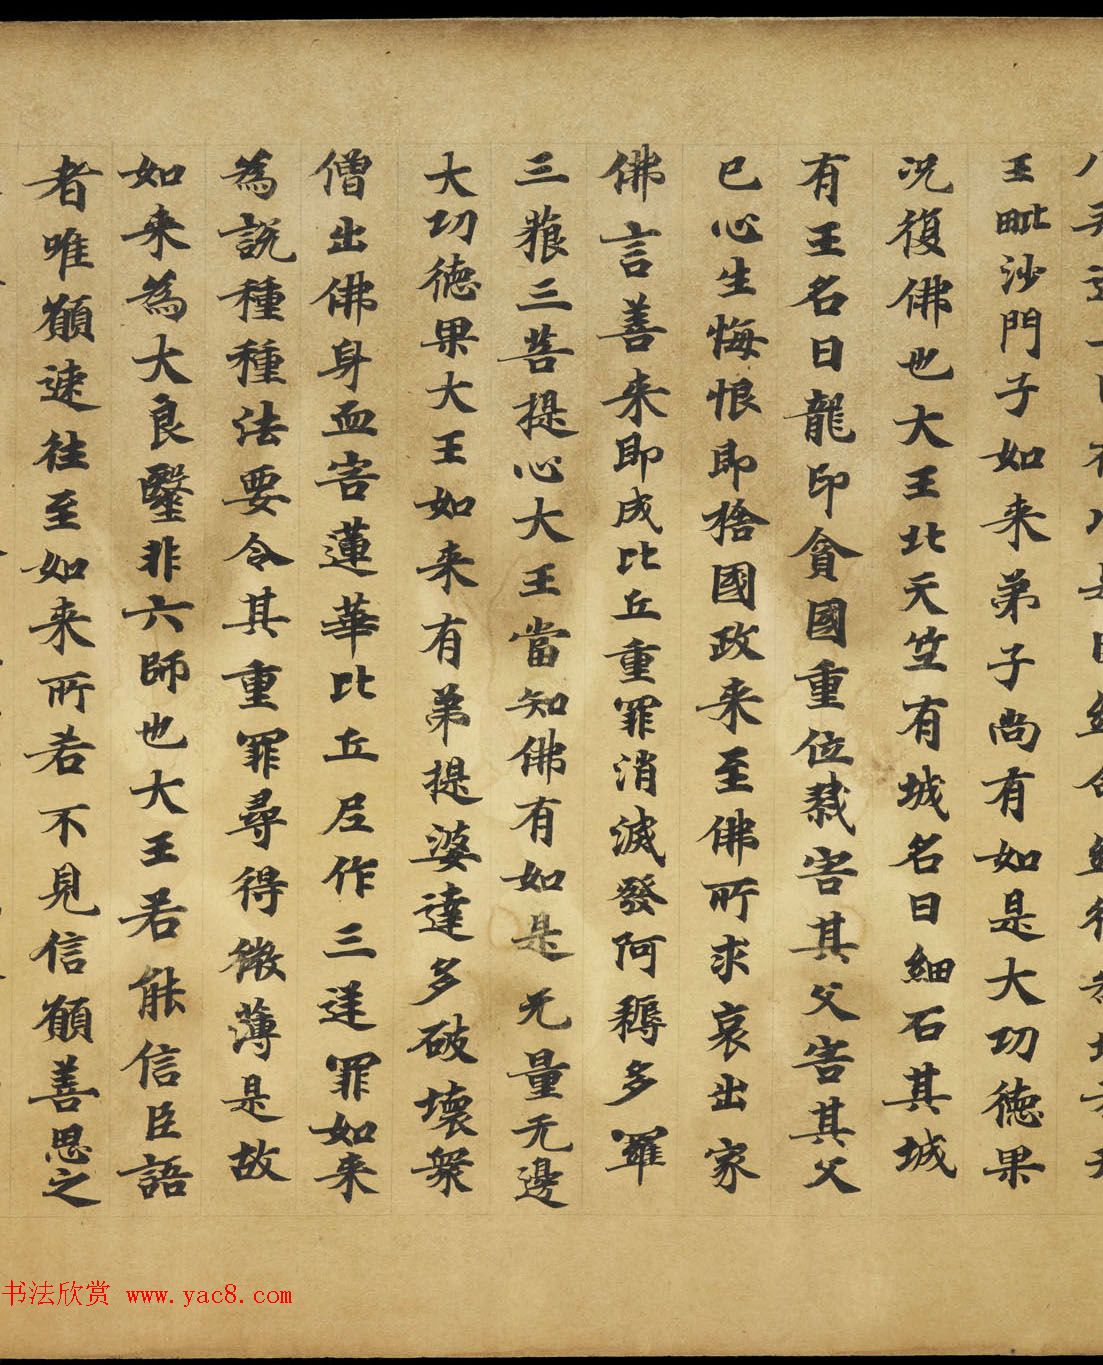 王毗沙門子如来弟子尚有如是大功德果
况復佛也大王北天竺有城名曰細石其城
有王名曰龍印貪國重位煞害其父害其父
已心生悔恨即捨國政来至佛所求哀出家
佛言善来即成比丘重罪消滅發阿耨多羅
三藐三菩提心大王當知佛有如是无量无邊
大功德果大王如来有弟提婆達多破壞衆
僧出佛身血害蓮華比丘尼作三逆罪如来
為說種種法要令其重罪尋得微薄是故
如来為大良毉非六師也大王若能信臣語
者唯願速往至如来所若不見信願善思之
书法欣赏 www.yac8.com